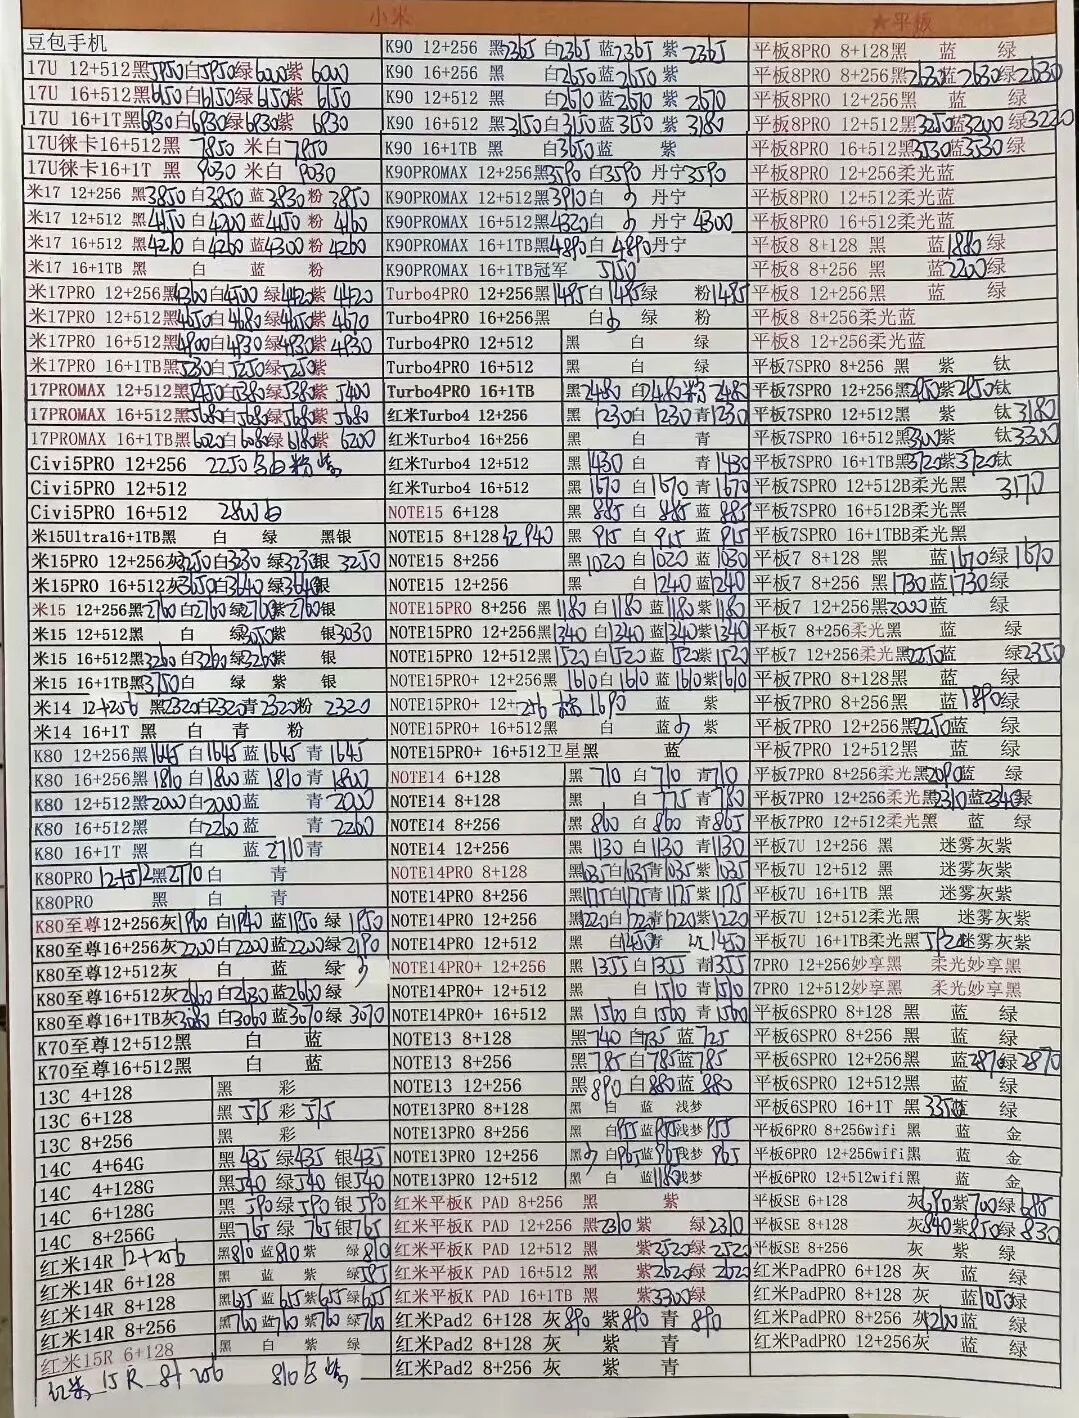 小米
★平板
豆包手机
17U 12+512黑5950白5950绿6000紫 6000
17U 16+512黑6150白6150绿6150紫 6150
17U 16+1T黑6930白6930绿6930紫 6930
17U徕卡16+512黑 7850 米白7850
17U徕卡16+1T 黑 9030 米白 9030
米17 12+256 黑3850白3850蓝3830粉3850
米17 12+512 黑4150白4200蓝4150粉4160
米17 16+512 黑4210白4260蓝4300粉4260
米17 16+1TB 黑 白 蓝 粉
米17PRO 12+256黑4360白4500绿4420紫4420
米17PRO 12+512黑4650白4680绿4650紫4670
米17PRO 16+512黑4900白4930绿4930紫4930
米17PRO 16+1TB黑5230白5250绿5250紫
17PROMAX 12+512黑5450白5380绿5380紫5400
17PROMAX 16+512黑5680白5680绿5680紫5680
17PROMAX 16+1TB黑6020白6080绿6180紫6200
Civi5PRO 12+256 2250 白粉紫
Civi5PRO 12+512
Civi5PRO 16+512 2800白
米15Ultra16+1TB黑 白 绿 黑银
米15PRO 12+256灰3250白3230绿3230银3250
米15PRO 16+512灰3650白3640绿3640银
米15 12+256黑2760白2760绿2760紫2760银
米15 12+512黑 白 绿3050紫 银3030
米15 16+512黑3260白3260绿3260紫 银
米15 16+1TB黑3750白 绿 紫 银
米14 12+256 黑2320白2320青2320粉 2320
米14 16+1T 黑 白 青 粉
K80 12+256黑1645白1645蓝1645青1645
K80 16+256黑1810白1800蓝1810青1800
K80 12+512黑2000白2000蓝 青2000
K80 16+512黑 白2260蓝 青2260
K80 16+1T 黑 白 蓝2710青
K80PRO 12+512黑2770白 青
K80PRO 黑 白 青
K80至尊12+256灰1960白1940蓝1950绿1950
K80至尊16+256灰2200白2200蓝2200绿2190
K80至尊12+512灰 白 蓝 绿
K80至尊16+512灰2660白2630蓝2600绿
K80至尊16+1TB灰3080白3060蓝3070绿3070
K70至尊12+512黑 白 蓝
K70至尊16+512黑 白 蓝
13C 4+128 黑 彩
13C 6+128 黑 515 彩 515
13C 8+256 黑 彩
14C 4+64G 黑435绿435银435
14C 4+128G 黑540绿540银540
14C 6+128G 黑590绿590银590
14C 8+256G 黑765绿765银765
红米14R 12+256 黑810蓝810紫 绿810
红米14R 6+128 黑 蓝 紫 绿595
红米14R 8+128 黑655蓝655紫655绿655
红米14R 8+256 黑760蓝760紫760绿760
红米15R 6+128 黑 白 紫 绿
红米15R 8+256 810白紫
K90 12+256 黑2365白2365蓝2365紫2365
K90 16+256 黑 白2650蓝2650紫
K90 12+512 黑 白2670蓝2670紫2670
K90 16+512 黑3150白3150蓝3150紫3180
K90 16+1TB 黑 白3650蓝 紫
K90PROMAX 12+256黑3590白3590丹宁3590
K90PROMAX 12+512黑3910白 丹宁
K90PROMAX 16+512黑4320白 丹宁4300
K90PROMAX 16+1TB黑4890白4890丹宁
K90PROMAX 16+1TB冠军 5150
Turbo4PRO 12+256黑1485白1485绿 粉1485
Turbo4PRO 16+256黑 白 绿 粉
Turbo4PRO 12+512 黑 白 绿
Turbo4PRO 16+512 黑 白 绿
Turbo4PRO 16+1TB 黑2480白2480粉2480
红米Turbo4 12+256 黑1230白1230青1230
红米Turbo4 16+256 黑 白 青
红米Turbo4 12+512 黑1430白 青1430
红米Turbo4 16+512 黑1670白1670青1670
NOTE15 6+128 黑885白885蓝885
NOTE15 8+128红940 黑915白915蓝915
NOTE15 8+256 黑1020白1020蓝1030
NOTE15 12+256 黑 白1240蓝1240
NOTE15PRO 8+256 黑1180白1180蓝1180紫1180
NOTE15PRO 12+256黑1340白1340蓝1340紫1340
NOTE15PRO 12+512黑1520白1520蓝1520紫1520
NOTE15PRO+ 12+256黑1610白1610蓝1610紫1610
NOTE15PRO+ 12+256 1690 蓝 紫
NOTE15PRO+ 16+512黑 白 蓝 紫
NOTE15PRO+ 16+512卫星黑 蓝
NOTE14 6+128 黑710白710青710
NOTE14 8+128 黑 白775青780
NOTE14 8+256 黑860白860青865
NOTE14 12+256 黑1130白1130青1130
NOTE14PRO 8+128 黑1035白1035青1035紫1035
NOTE14PRO 8+256 黑1175白1175青1175紫1175
NOTE14PRO 12+256 黑1220白1220青1220紫1220
NOTE14PRO 12+512 黑 白1450青 紫1450
NOTE14PRO+ 12+256 黑1355白1355青1355
NOTE14PRO+ 12+512 黑 白1510青1510
NOTE14PRO+ 16+512 黑1560白1560青1560
NOTE13 8+128 黑740白735蓝725
NOTE13 8+256 黑785白785蓝785
NOTE13 12+256 黑890白880蓝880
NOTE13PRO 8+128 黑 白 蓝 浅梦
NOTE13PRO 8+256 黑 白955蓝955浅梦955
NOTE13PRO 12+256 黑 白965蓝965浅梦965
NOTE13PRO 12+512 黑 白 蓝1180浅梦
红米平板K PAD 8+256 黑 紫
红米平板K PAD 12+256 黑2310紫 绿2310
红米平板K PAD 12+512 黑 紫2520绿2520
红米平板K PAD 16+512 黑 紫2620绿2620
红米平板K PAD 16+1TB 黑 紫3300绿
红米Pad2 6+128 灰890紫890青890
红米Pad2 8+128 灰 紫 青
红米Pad2 8+256 灰 紫 青
平板8PRO 8+128黑 蓝 绿
平板8PRO 8+256黑2630蓝2630绿2630
平板8PRO 12+256黑 蓝 绿
平板8PRO 12+512黑3250蓝3200绿3220
平板8PRO 16+512黑3530蓝3530绿
平板8PRO 12+256柔光蓝
平板8PRO 12+512柔光蓝
平板8PRO 16+512柔光蓝
平板8 8+128 黑 蓝1880绿
平板8 8+256 黑 蓝2200绿
平板8 12+256黑 蓝 绿
平板8 8+256柔光蓝
平板8 12+256柔光蓝
平板7SPRO 8+256 黑 紫 钛
平板7SPRO 12+256黑2950紫2950钛
平板7SPRO 12+512黑 紫 钛3180
平板7SPRO 16+512黑3300紫 钛3300
平板7SPRO 16+1TB黑3720紫3720钛
平板7SPRO 12+512B柔光黑 3170
平板7SPRO 16+512BB柔光黑
平板7SPRO 16+1TBB柔光黑
平板7 8+128 黑 蓝1670绿1670
平板7 8+256 黑1730蓝1730绿
平板7 12+256黑2000蓝 绿
平板7 8+256柔光黑 蓝 绿
平板7 12+256柔光黑2250蓝 绿2350
平板7PRO 8+128黑 蓝 绿
平板7PRO 8+256黑 蓝1890绿
平板7PRO 12+256黑2250蓝 绿
平板7PRO 12+512黑 蓝 绿
平板7PRO 8+256柔光黑2090蓝 绿
平板7PRO 12+256柔光黑2310蓝2340绿
平板7PRO 12+512柔光黑 蓝 绿
平板7U 12+256 黑 迷雾灰紫
平板7U 12+512 黑 迷雾灰紫
平板7U 16+1TB 黑 迷雾灰紫
平板7U 12+512柔光黑 迷雾灰紫
平板7U 16+1TB柔光黑 迷雾灰紫
7PRO 12+256妙享黑 柔光妙享黑
7PRO 12+512妙享黑 柔光妙享黑
平板6SPRO 8+128 黑 蓝 绿
平板6SPRO 8+256 黑 蓝 绿
平板6SPRO 12+256黑 蓝2870绿2870
平板6SPRO 12+512黑 蓝 绿
平板6SPRO 16+1T 黑3350蓝 绿
平板6PRO 8+256wifi 黑 蓝 金
平板6PRO 12+256wifi黑 蓝 金
平板6PRO 12+512wifi黑 蓝 金
平板SE 6+128 灰690紫700绿685
平板SE 8+128 灰840紫850绿830
平板SE 8+256 灰 紫 绿
红米PadPRO 6+128 灰 蓝 绿
红米PadPRO 8+128 灰 蓝1050绿
红米PadPRO 8+256 灰1200蓝 绿
红米PadPRO 12+256灰 蓝 绿